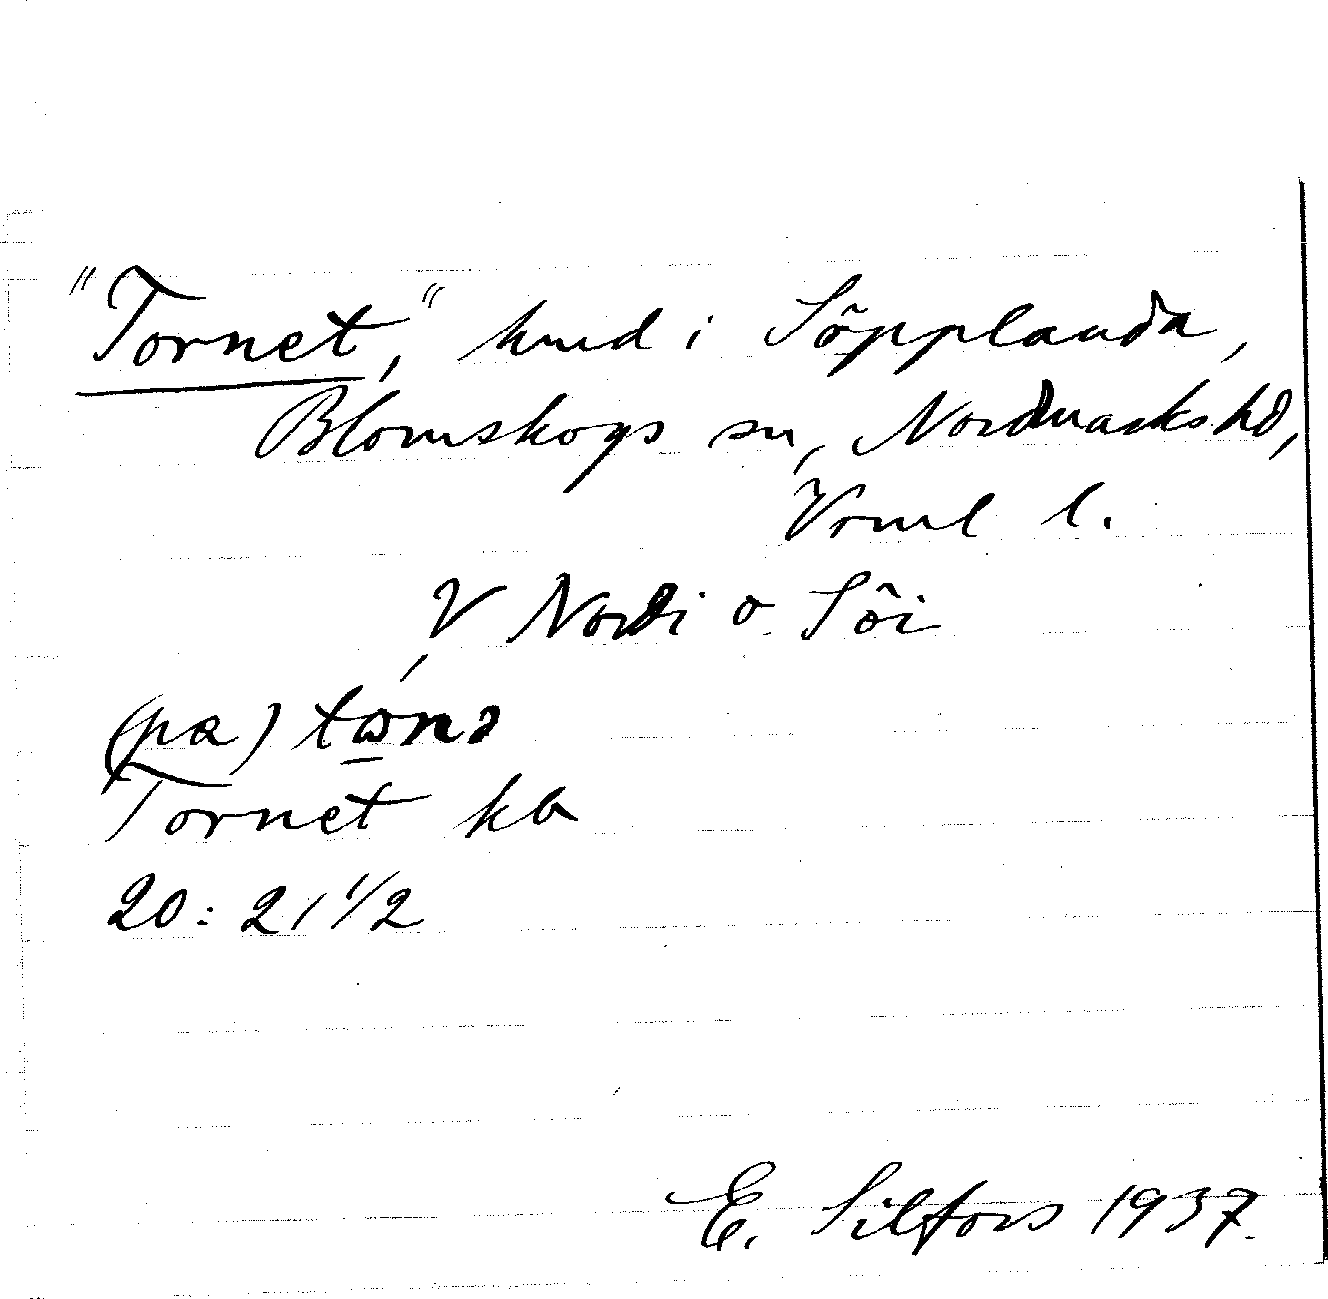 "Tornet", hmd i Söpplanda,
Blomskogs sn, Nordmarks hd,
Vrml l.
V Nordi o Söi
(pa)
Tornet ka
20: 21 1/2
E. Silfors 1937.